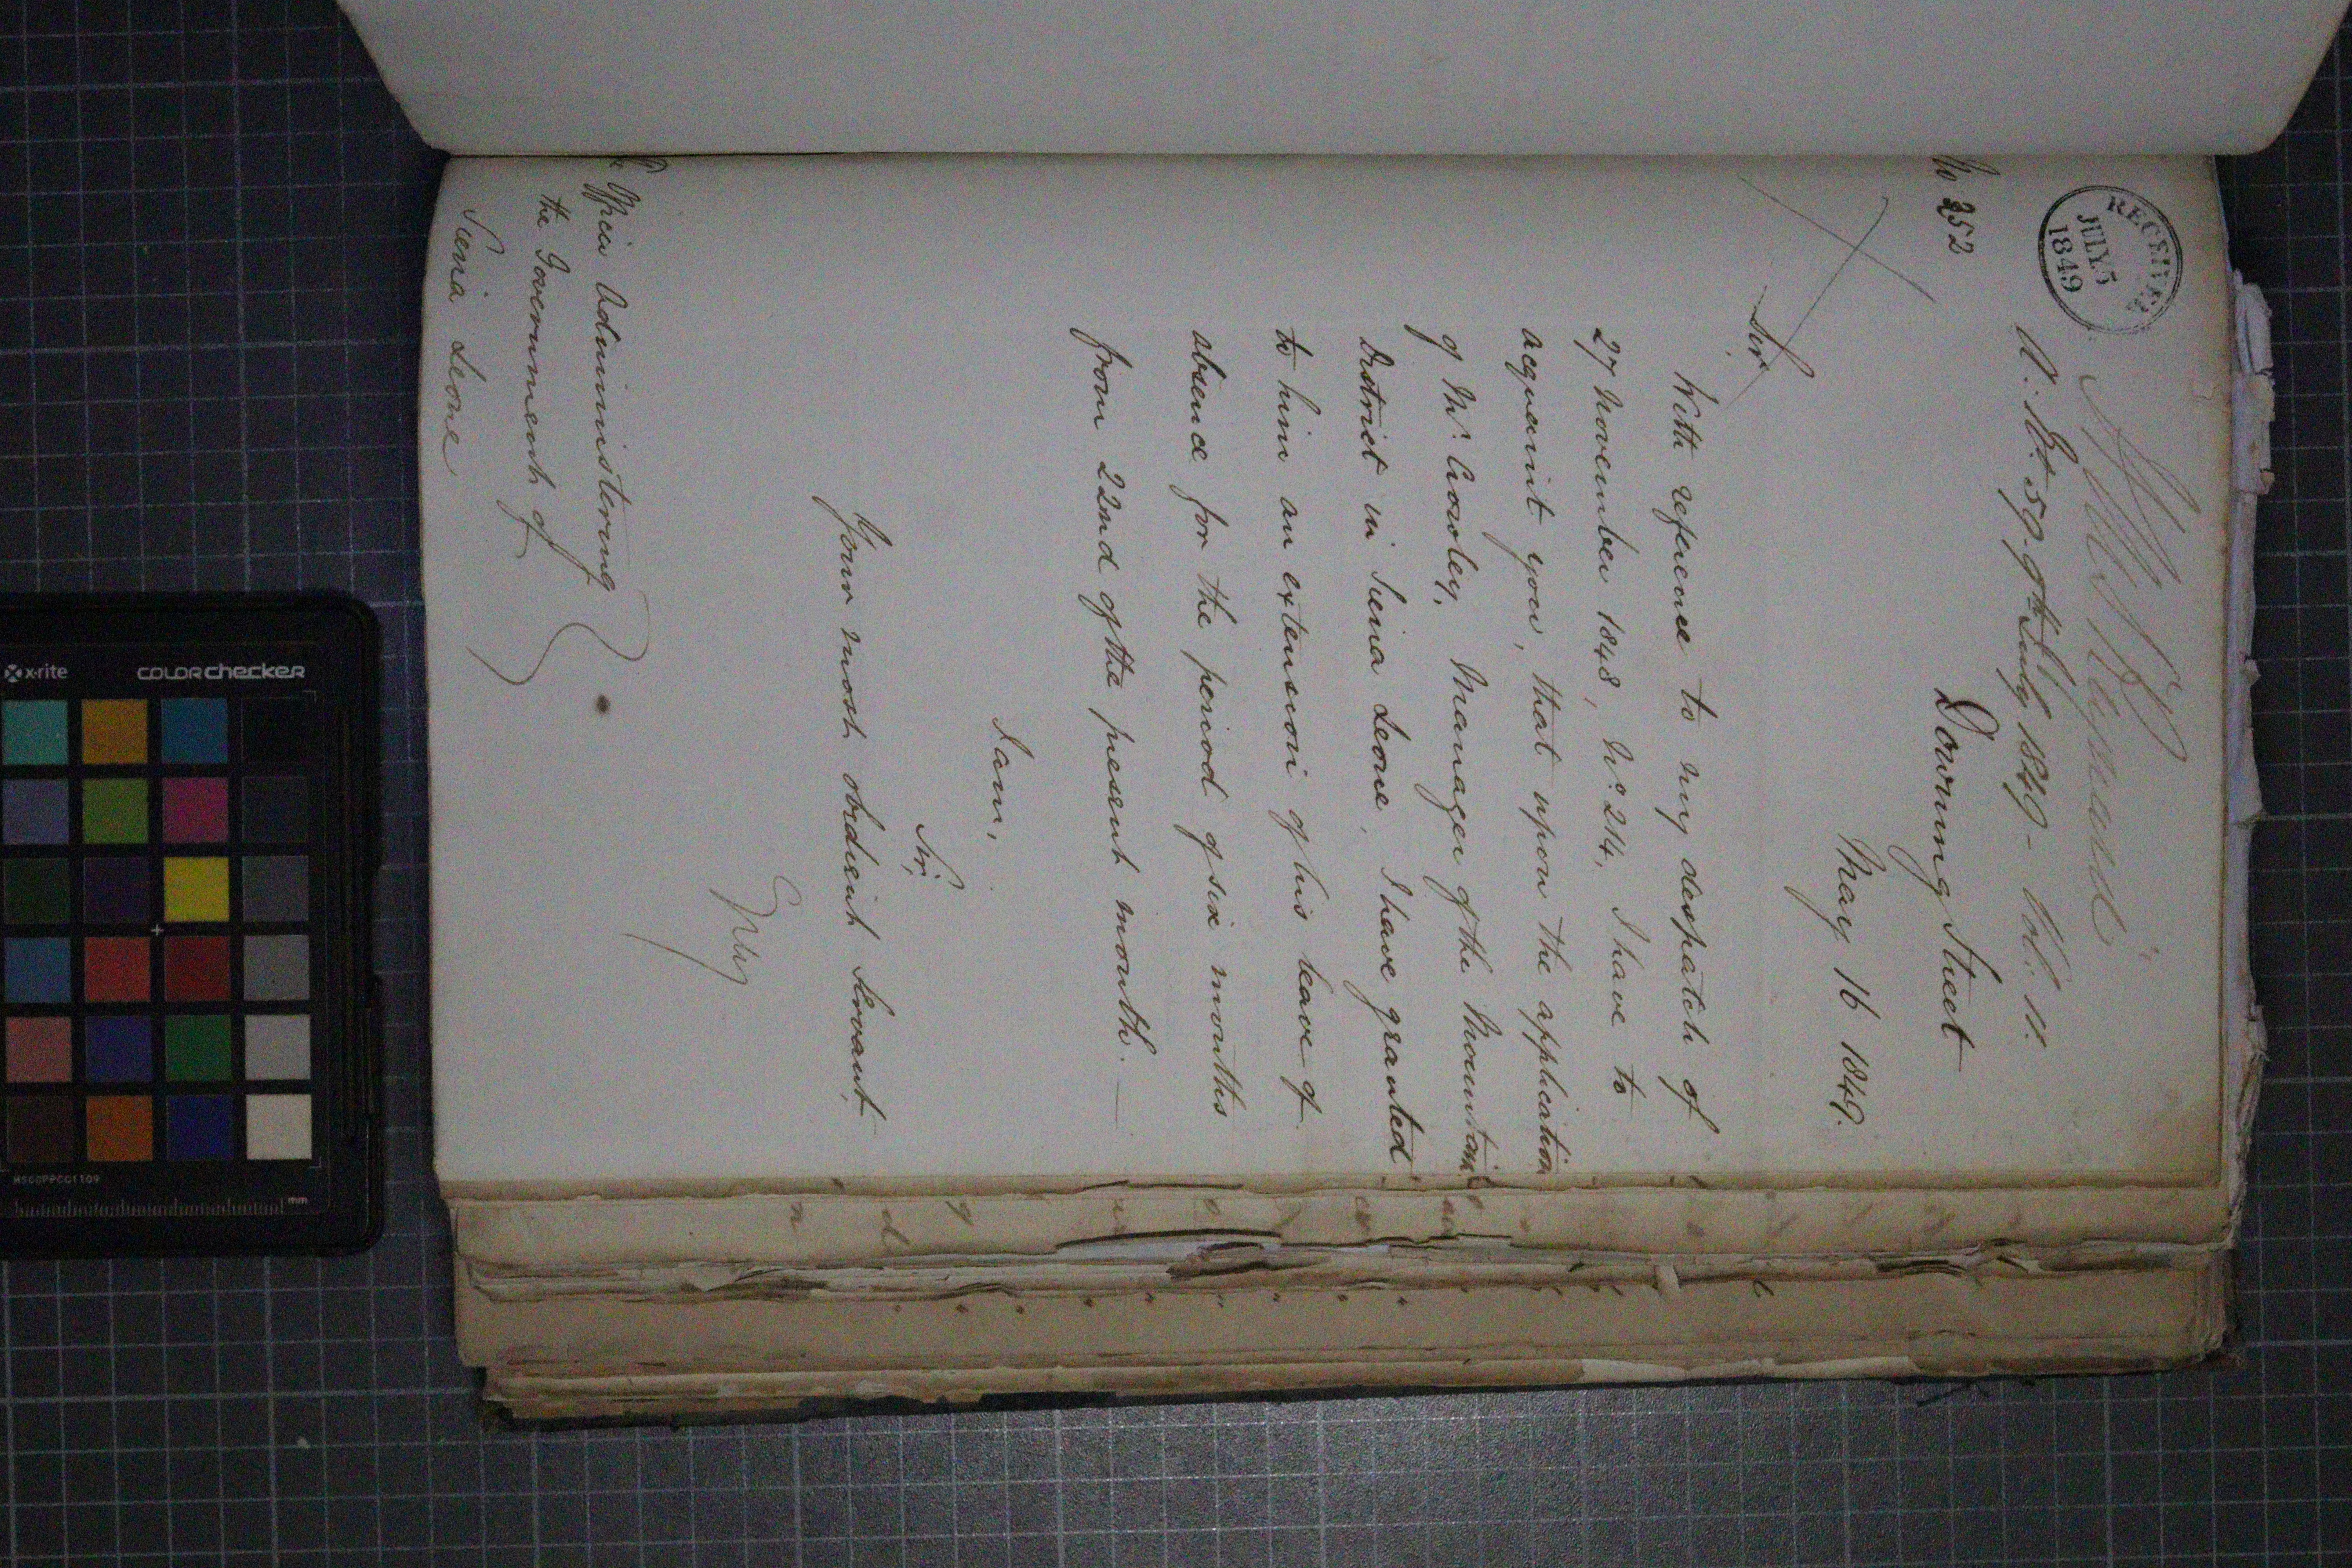 RECEIVED
JULY 5
1849
A. Et. 59. 9th July 1849 - Vol: 11.
No 252
Downing Street
May 16 1849.
Sir
With reference to my despatch of
27 November 1848, No. 214, I have to
acquaint you, that upon the application
of Mr. Crowley, Manager of the Mountain
District in Sierra Leone, I have granted
to him an extension of his leave of
absence for the period of six months
from 22nd of the present month.
I am,
Sir,
Your most obedient Servant,
Grey
Officer Administering
the Government of
Sierra Leone
x-rite
COLORchecker
MSCCPPCC1109
mm